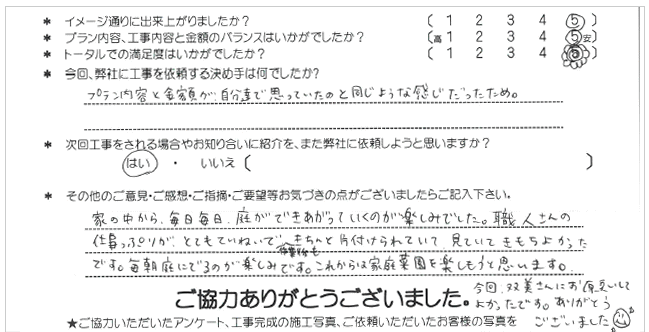 * イメージ通りに出来上がりましたか? ( 1 2 3 4 5 )
* プラン内容、工事内容と金額のバランスはいかがでしたか? (高 1 2 3 4 5 安)
* トータルでの満足度はいかがでしたか? ( 1 2 3 4 5 )
* 今回、弊社に工事を依頼する決め手は何でしたか?
プラン内容と金額が、自分達で思っていたのと同じような感じだったため。
* 次回工事をされる場合やお知り合いに紹介を、また弊社に依頼しようと思いますか?
はい ・ いいえ ( )
* その他のご意見・ご感想・ご指摘・ご要望等お気づきの点がございましたらご記入下さい。
家の中から、毎日毎日、庭ができあがっていくのが楽しみでした。職人さんの
仕事っぷりが、とてもていねいで、作業後もきちんと片付けられていて、見ていてきもちよかった
です。毎朝庭にでるのが楽しみです。これからは家庭菜園を楽しもうと思います。
今回、双美さんにお願いして
よかったです。ありがとう
ございました
ご協力ありがとうございました。
★ご協力いただいたアンケート、工事完成の施工写真、ご依頼いただいたお客様の写真を